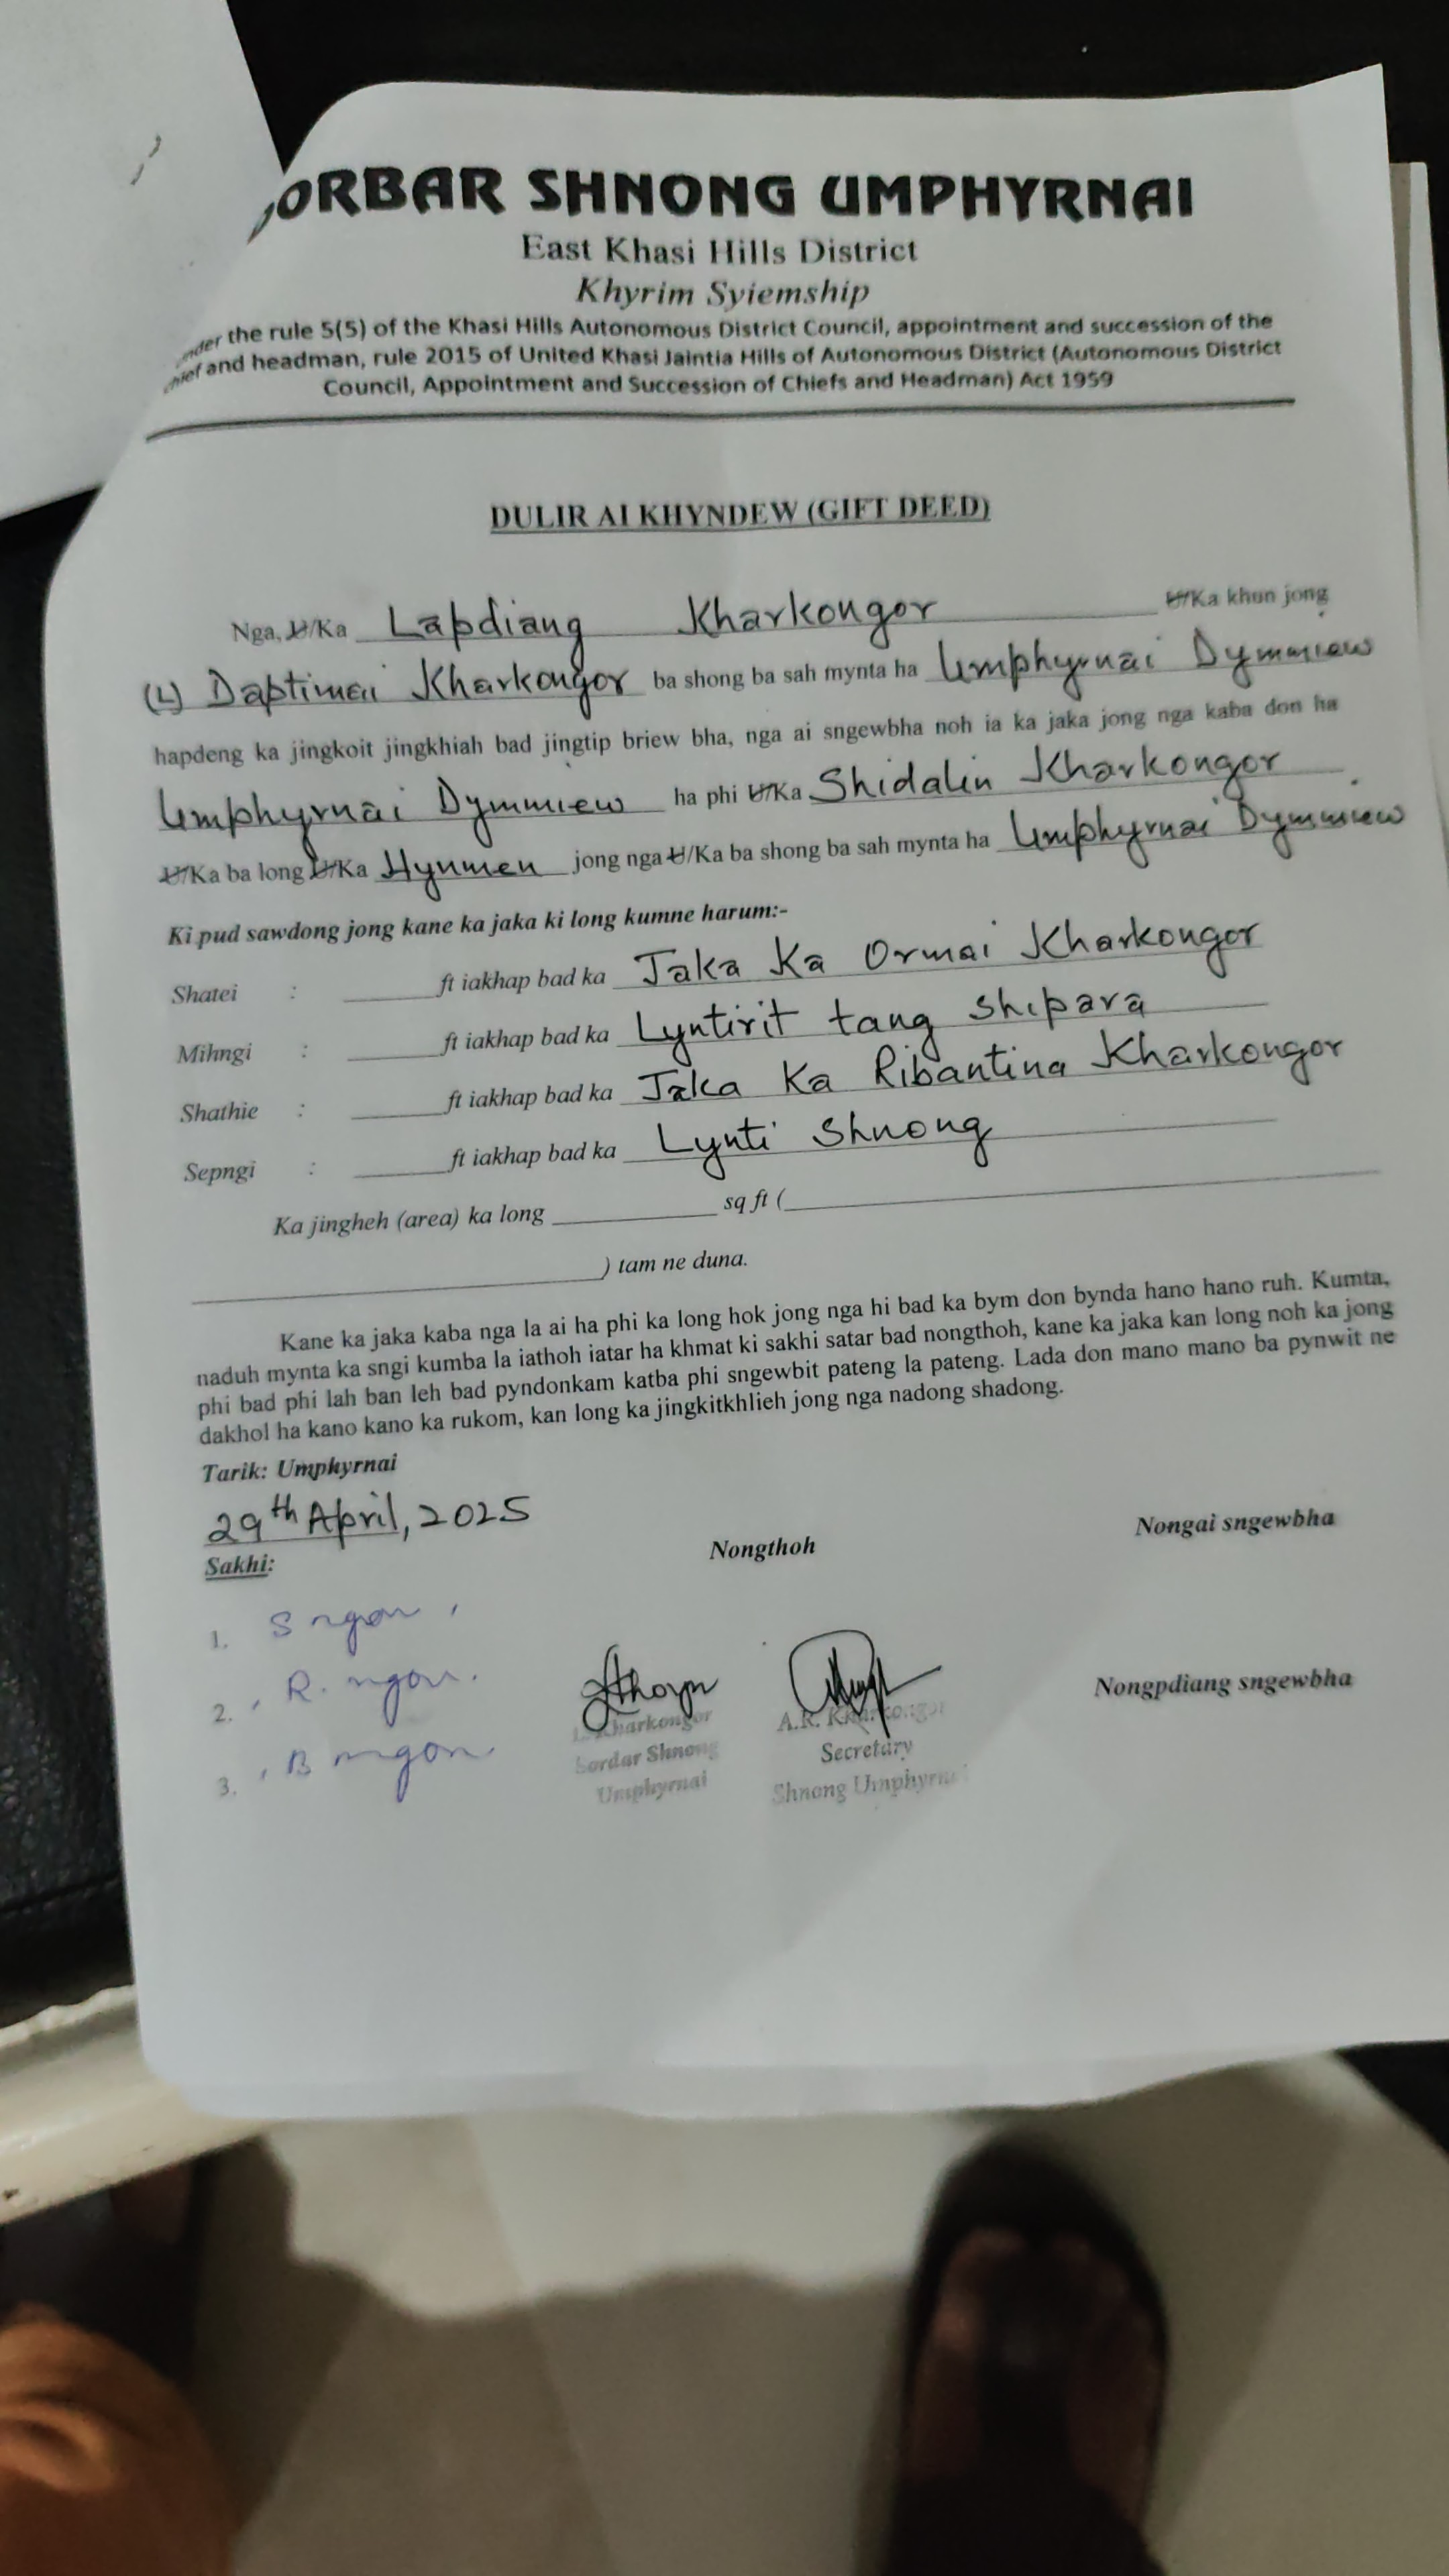 ORBAR SHNONG UMPHYRNAI
East Khasi Hills District
Khyrim Syiemship
nder the rule 5(5) of the Khasi Hills Autonomous District Council, appointment and succession of the
chief and headman, rule 2015 of United Khasi Jaintia Hills of Autonomous District (Autonomous District
Council, Appointment and Succession of Chiefs and Headman) Act 1959
DULIR AI KHYNDEW (GIFT DEED)
Nga, U/Ka Lapdiang Kharkongor U/Ka khun jong
(L) Daptimai Kharkongor ba shong ba sah mynta ha Umphyrnai Dymmiew
hapdeng ka jingkoit jingkhiah bad jingtip briew bha, nga ai sngewbha noh ia ka jaka jong nga kaba don ha
Umphyrnai Dymmiew ha phi U/Ka Shidalin Kharkongor
U/Ka ba long U/Ka Hynmen jong nga U/Ka ba shong ba sah mynta ha Umphyrnai Dymmiew
Ki pud sawdong jong kane ka jaka ki long kumne harum:-
Shatei : ft iakhap bad ka Jaka Ka Ormai Kharkongor
Mihngi : ft iakhap bad ka Lyntirit tang shipara
Shathie : ft iakhap bad ka Jaka Ka Ribantina Kharkongor
Sepngi : ft iakhap bad ka Lynti Shnong
Ka jingheh (area) ka long sq ft (
) tam ne duna.
Kane ka jaka kaba nga la ai ha phi ka long hok jong nga hi bad ka bym don bynda hano hano ruh. Kumta,
naduh mynta ka sngi kumba la iathoh iatar ha khmat ki sakhi satar bad nongthoh, kane ka jaka kan long noh ka jong
phi bad phi lah ban leh bad pyndonkam katba phi sngewbit pateng la pateng. Lada don mano mano ba pynwit ne
dakhol ha kano kano ka rukom, kan long ka jingkitkhlieh jong nga nadong shadong.
Tarik: Umphyrnai
29th April, 2025
Sakhi: Nongthoh Nongai sngewbha
1. S ngon
2. R. ngon.
3. B ngon
Nongpdiang sngewbha
Kharkongor A.R. Kharkongor
Sordar Shnong Secretary
Umphyrnai Shnong Umphyrnai